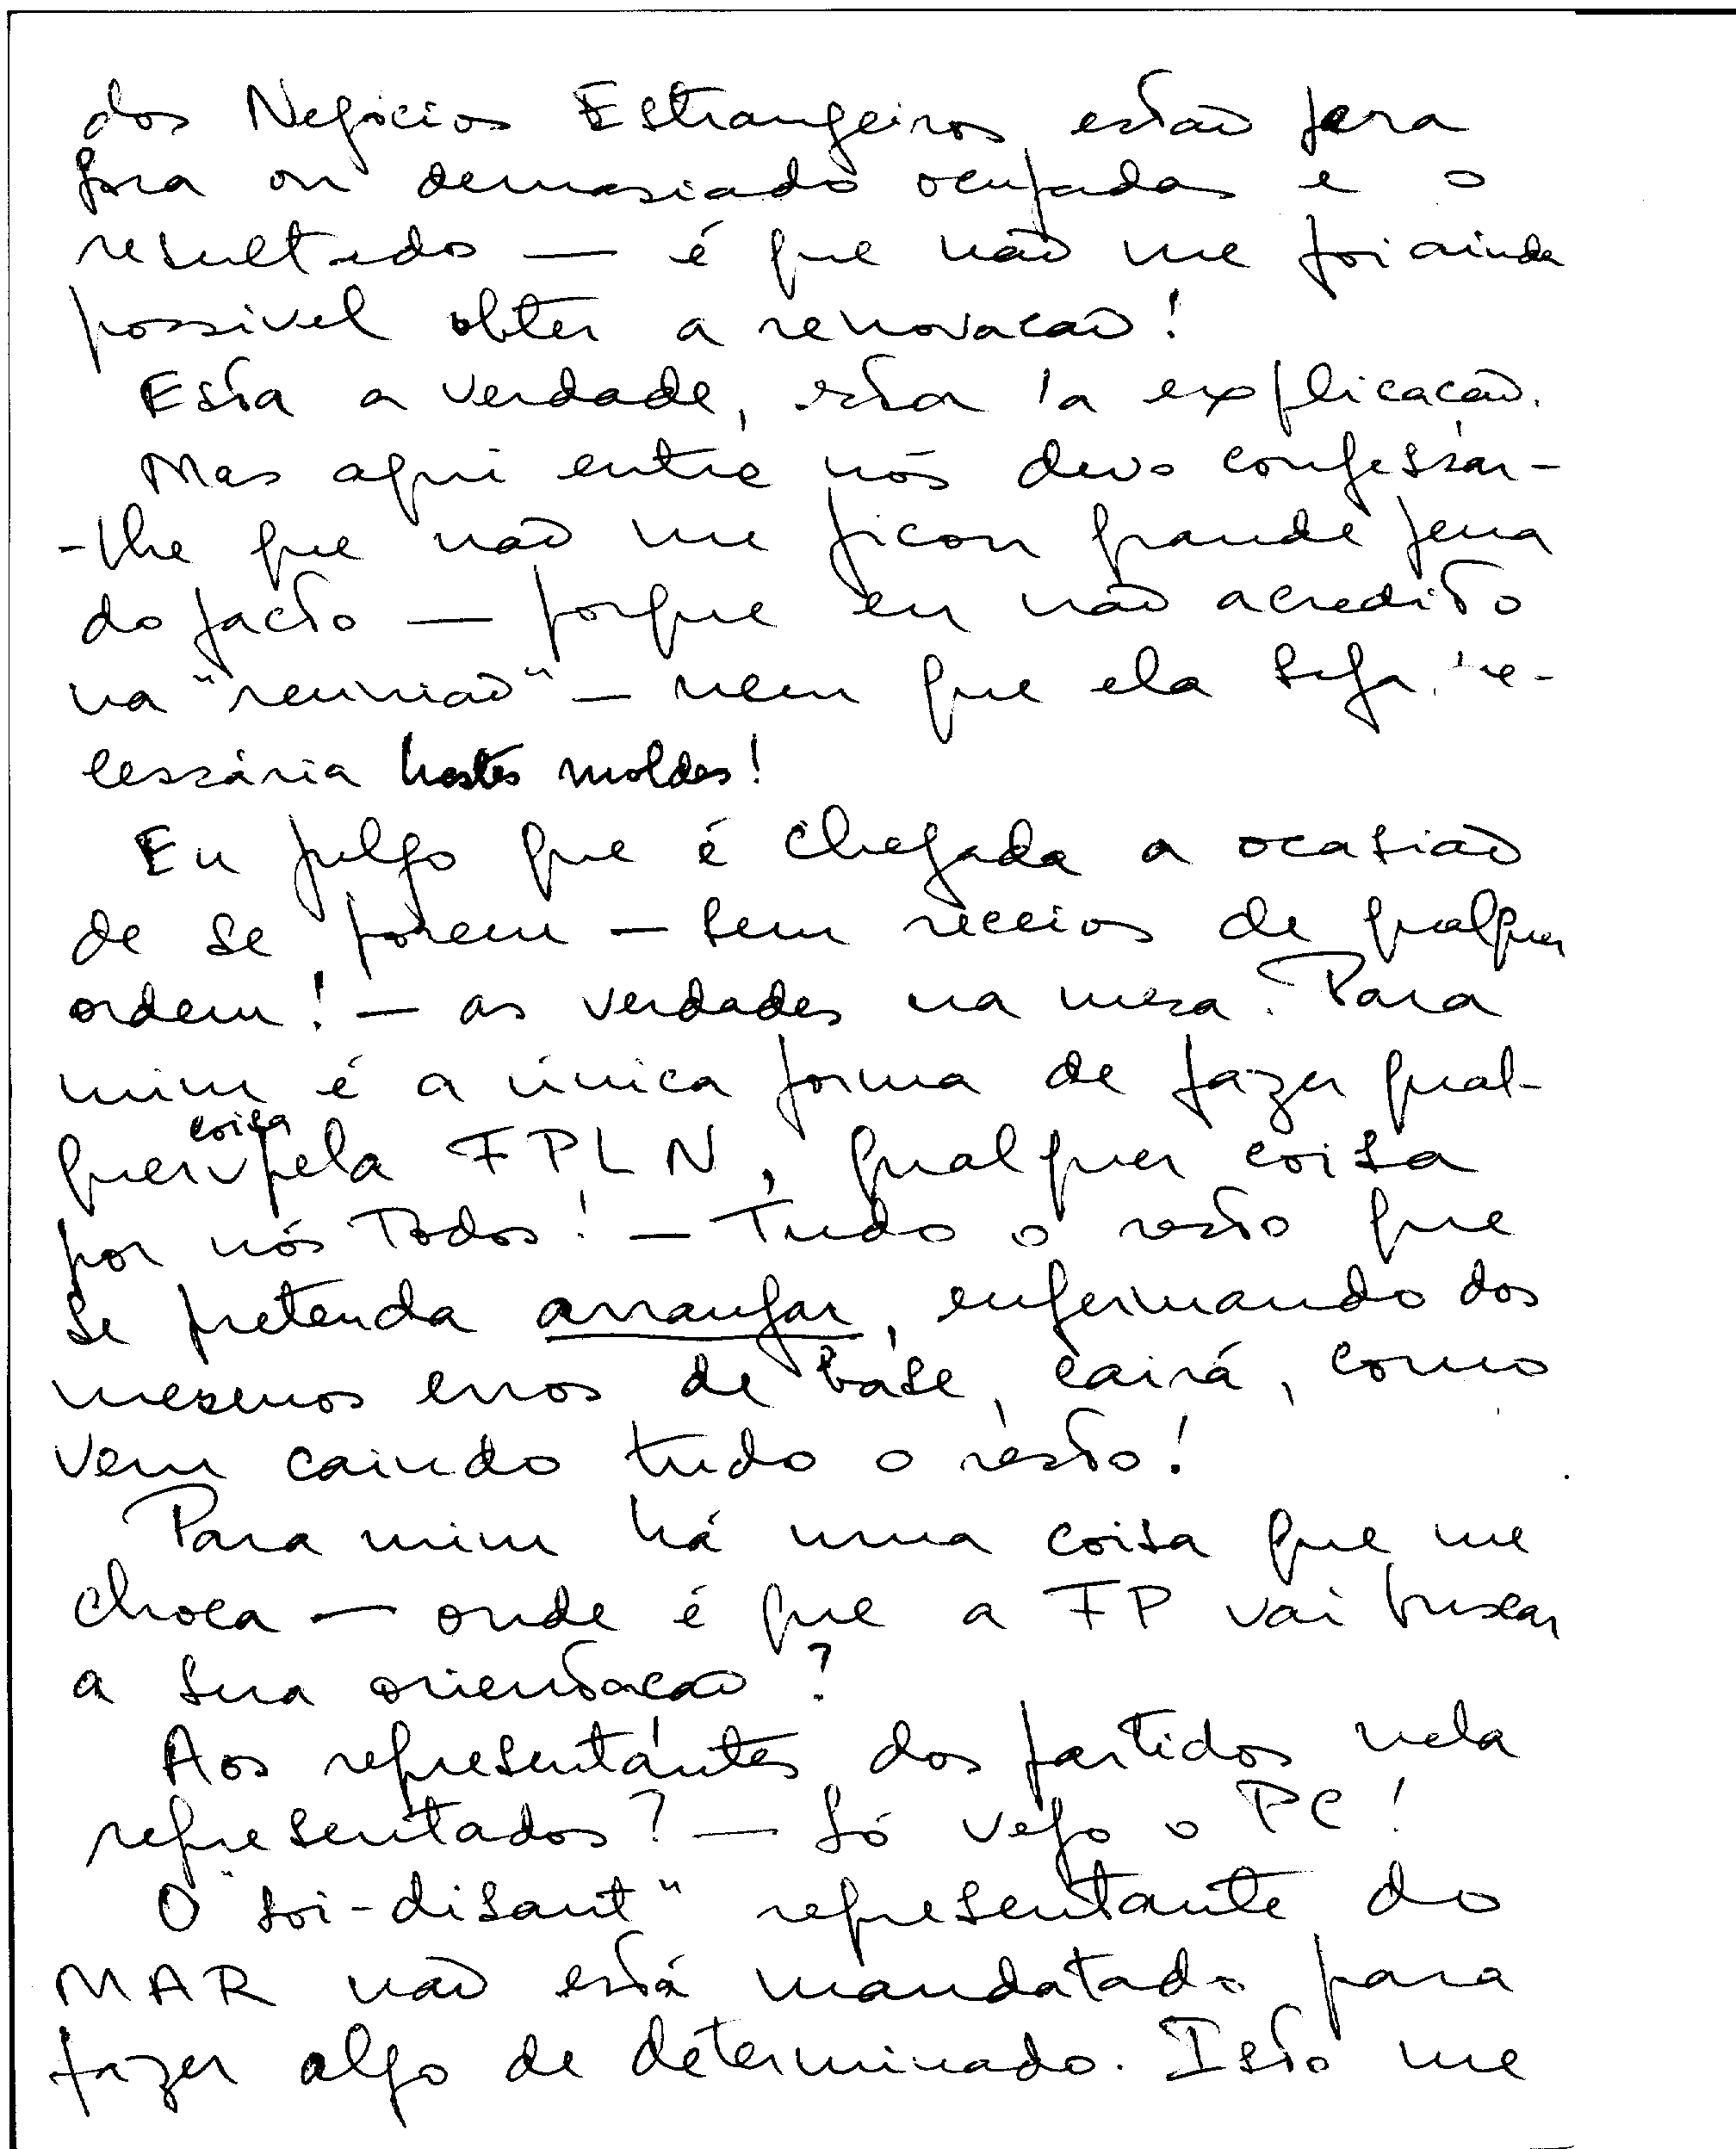 dos Negócios Estrangeiros estão para
fora ou demasiado ocupadas e o
resultado — é que não me foi ainda
possivel obter a renovacão!
Esta a verdade, esta a explicacão.
Mas aqui entre nós devo confessar-
-lhe que não me ficou grande pena
do facto — porque eu não acredito
na "reunião" — nem que ela seja ne-
cessária nestes moldes!
Eu julgo que é chegada a ocasião
de se porem — sem receios de qualquer
ordem! — as verdades na mesa. Para
mim é a única forma de fazer qual-
quer coisa pela FPLN, qualquer coisa
por nós todos! — Tudo o resto que
se pretenda arranjar, enfermando dos
mesmos erros de base, cairá, como
vem caindo tudo o resto!
Para mim há uma coisa que me
choca — onde é que a FP vai buscar
a sua orientacão?
Aos representantes dos partidos nela
representados? — Só vejo o PC!
O "soi-disant" representante do
MAR não está mandatado para
fazer algo de determinado. Isto me